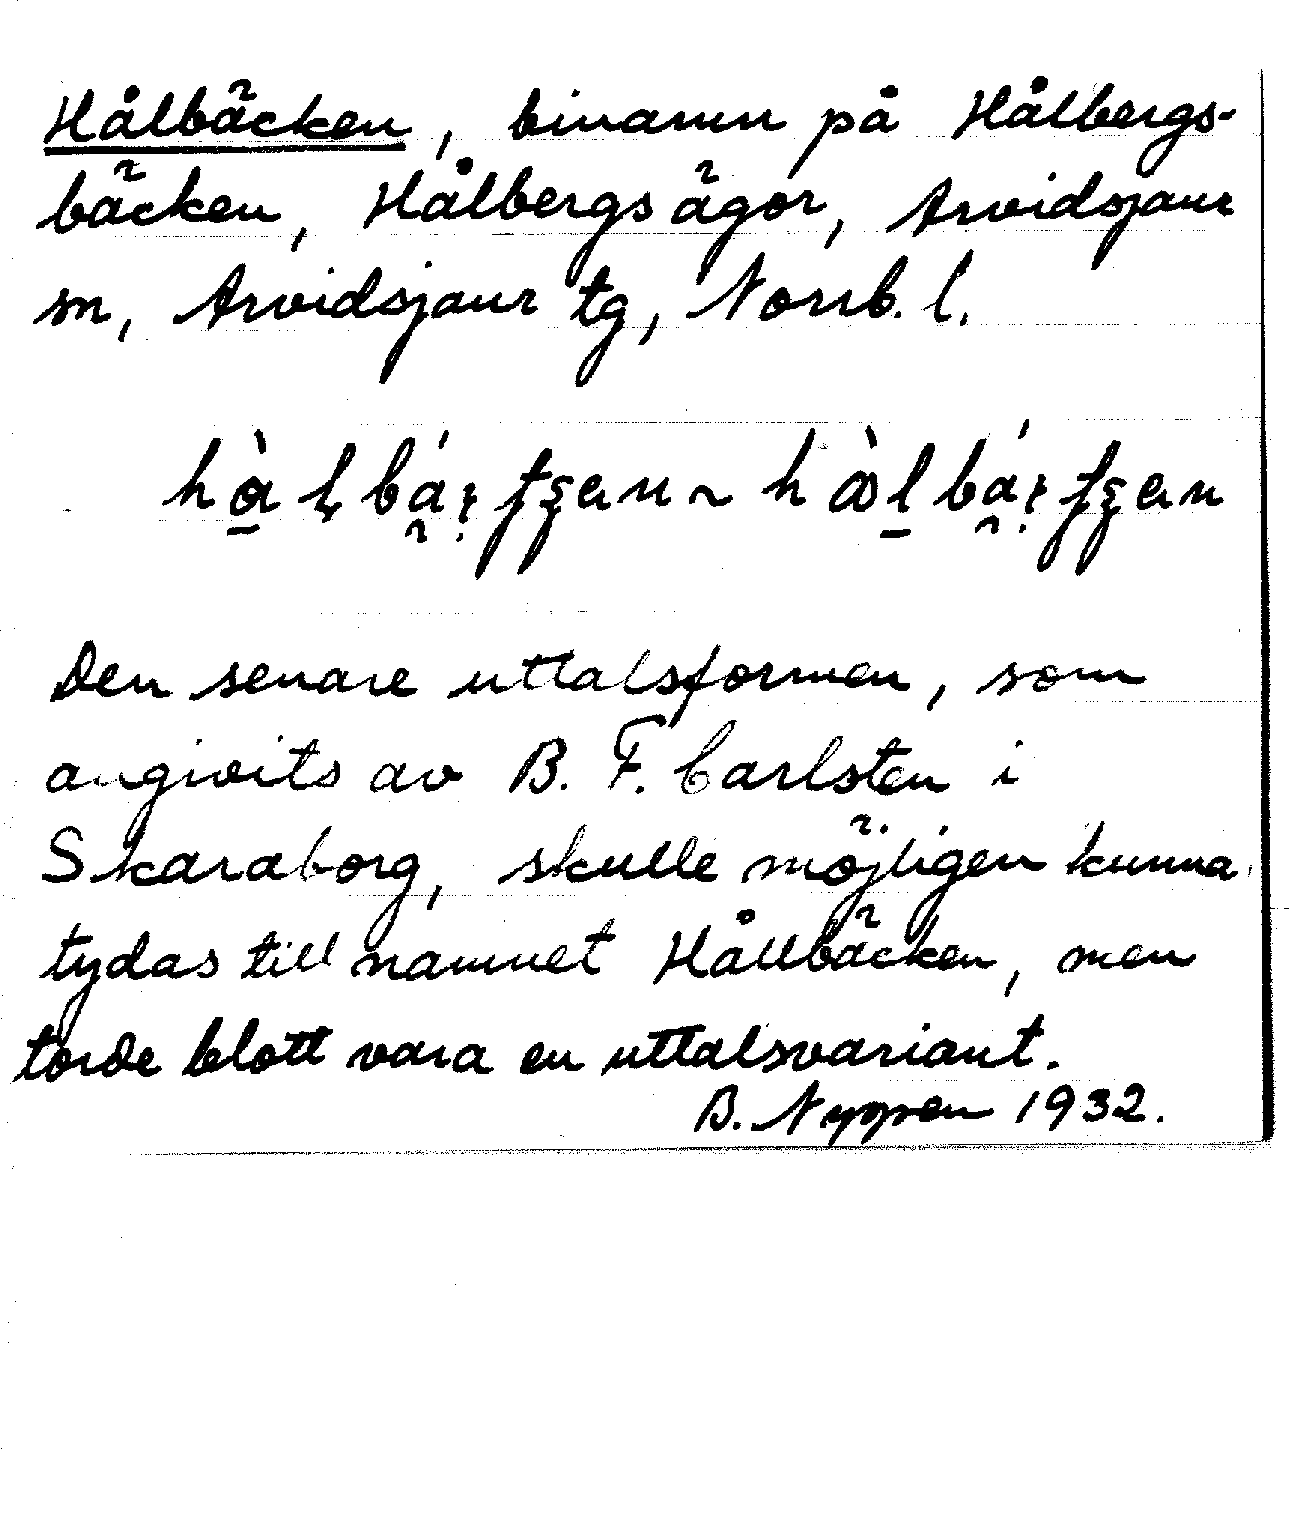 Hålbäcken, binamn på Hålbergs-
bäcken, Hålbergs ägor, Arvidsjaur
sn, Arvidsjaur tg, Norrb. l.
Den senare uttalsformen, som
angivits av B. F. Carlsten i
Skaraborg, skulle möjligen kunna
tydas till namnet Hållbäcken, men
torde blott vara en uttalsvariant.
B. Nyppen 1932.